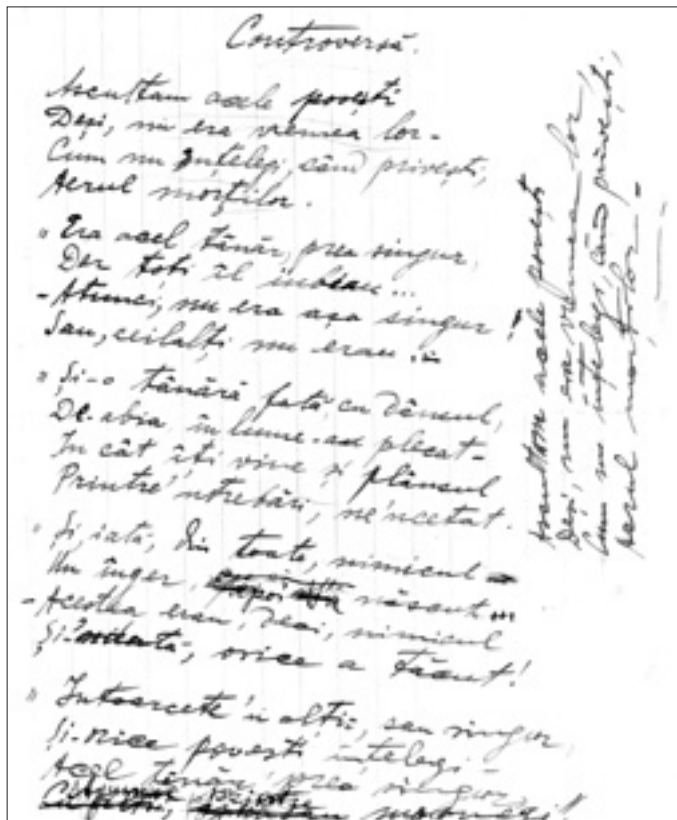 Controversă.
Ascultam acele povești
Deși, nu era vremea lor -
Cum nu înțelegi, când privești,
Aerul morților.
" Era acel tânăr, prea singur,
Dar toți îl iubeau...
- Atunci, nu era așa singur!
Sau, ceilalți nu erau...
" Și-o tânără fată, cu dânsul,
De-abia, în lume-au plecat -
În cât îți vine și plânsul
Printre'ntrebări, ne'ncetat.
" Și, iată, din toate, nimicul -
Un înger, născut...
- Aceștia erau, deci, nimicul
Și, orice a tăcut!
" Întoarcete'n alții, sau singur,
Și-nice povești înțelegi -
Acel tânăr, prea singur,
Ascultam acele povești
Deși, nu era vremea lor,
Cum nu înțelegi, când privești,
Aerul morților -